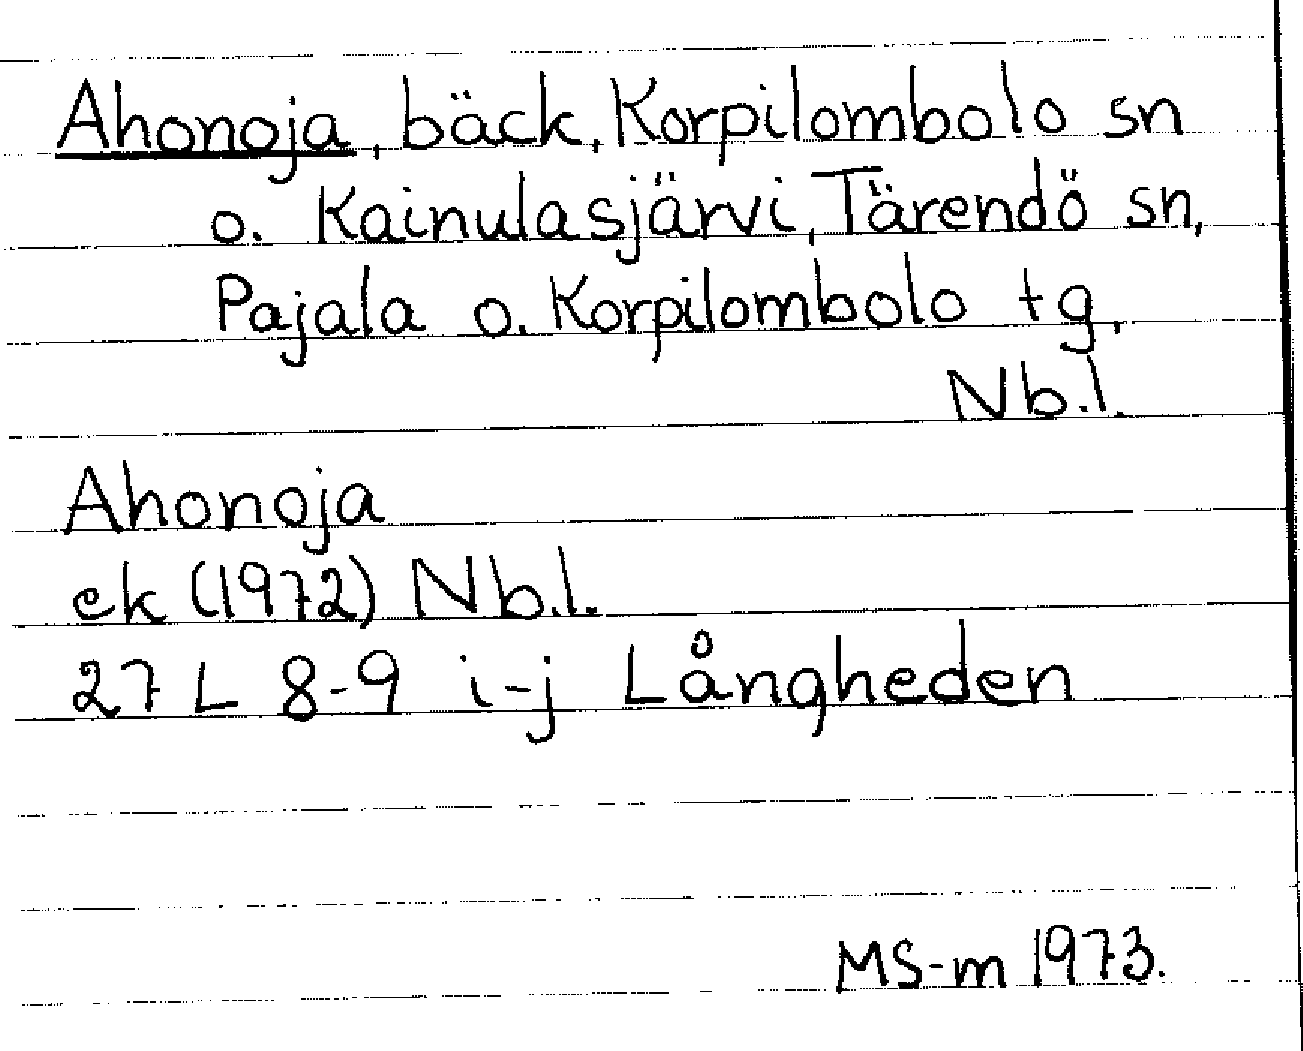 Ahonoja, bäck, Korpilombolo sn
o. Kainulasjärvi, Tärendö sn,
Pajala o. Korpilombolo tg,
Nb.l.
Ahonoja
ek (1972) Nb.l.
27 L 8-9 i-j Långheden
MS-m 1973.